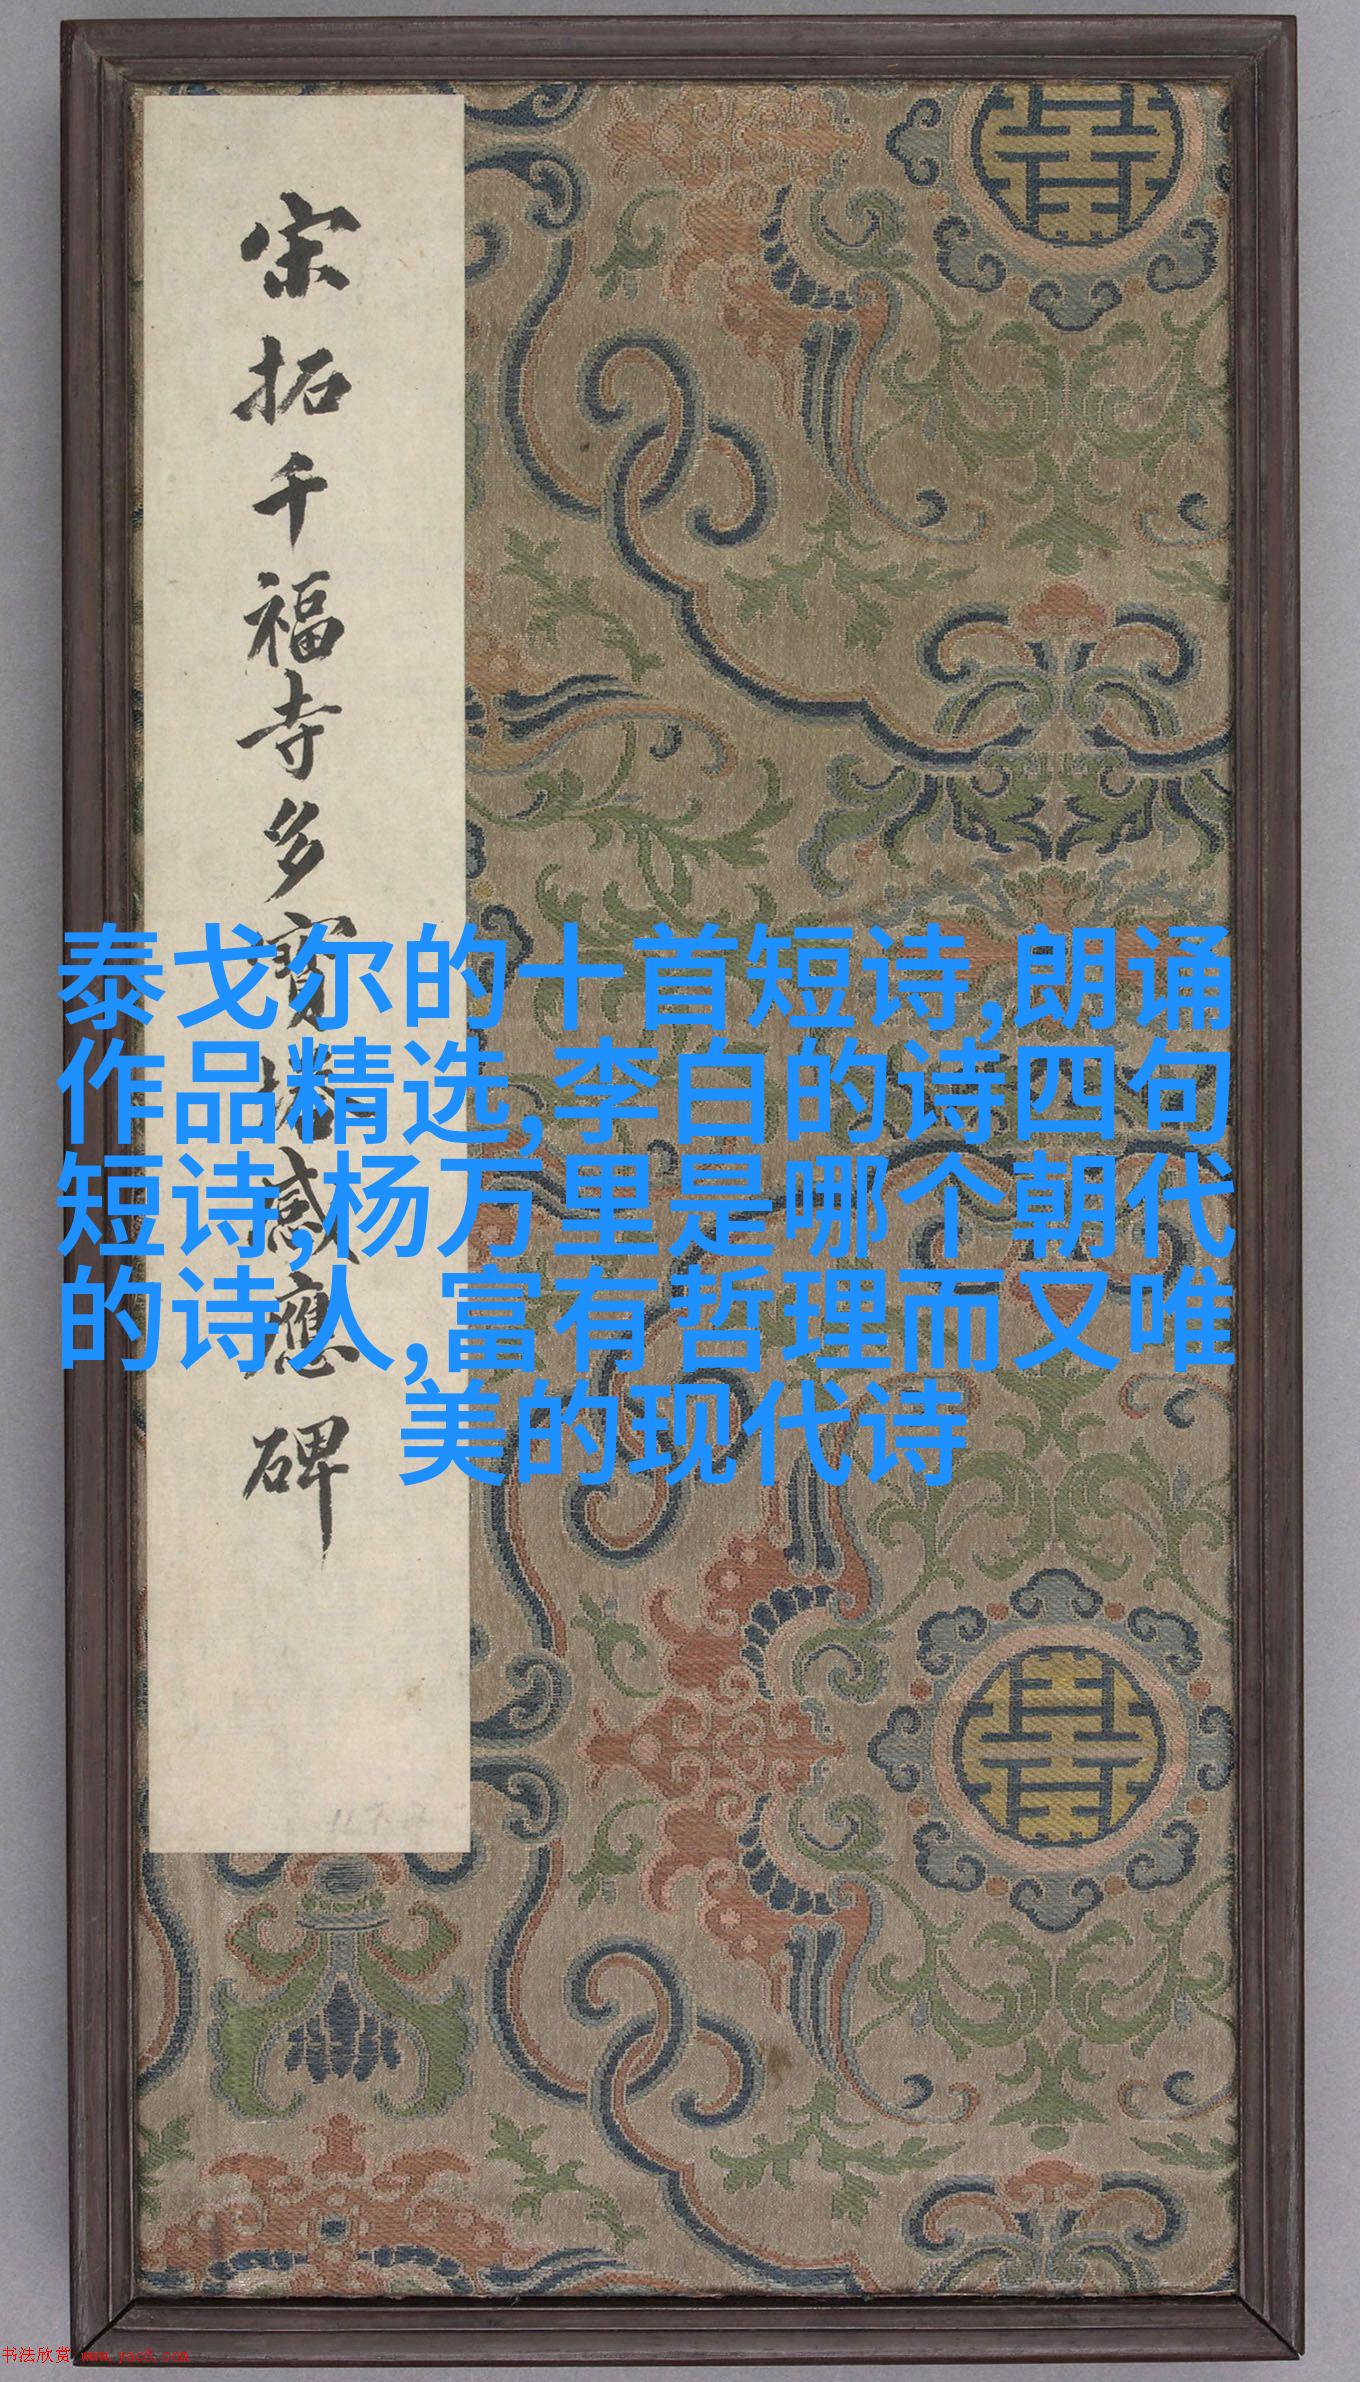 宋拓千福寺多寶塔感應碑
泰戈尔的十首短诗,朗诵
作品精选,李白的诗四句
短诗,杨万里是哪个朝代
的诗人,富有哲理而又唯
美的现代诗
书法欣赏 www.yac8.com